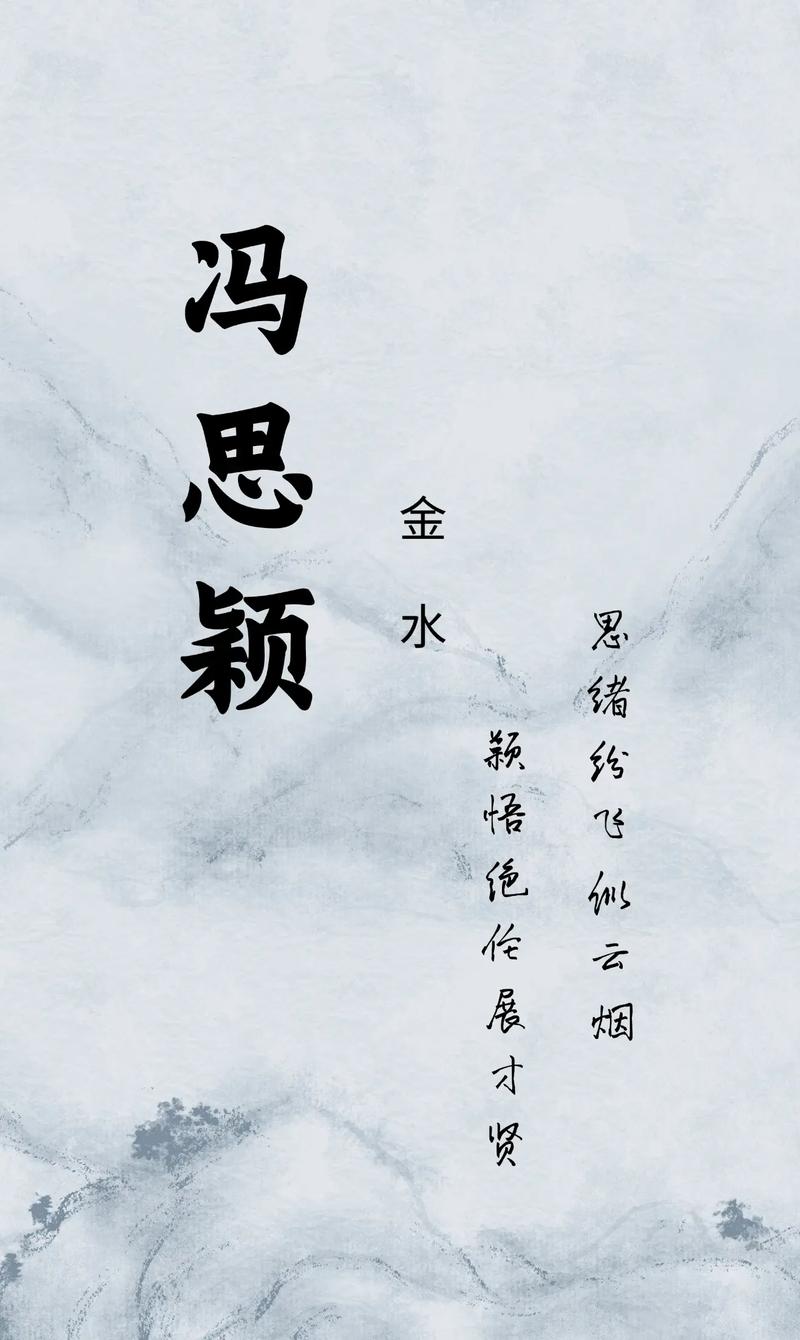 冯思颖
金水
思绪纷飞似云烟
颖悟绝伦展才贤